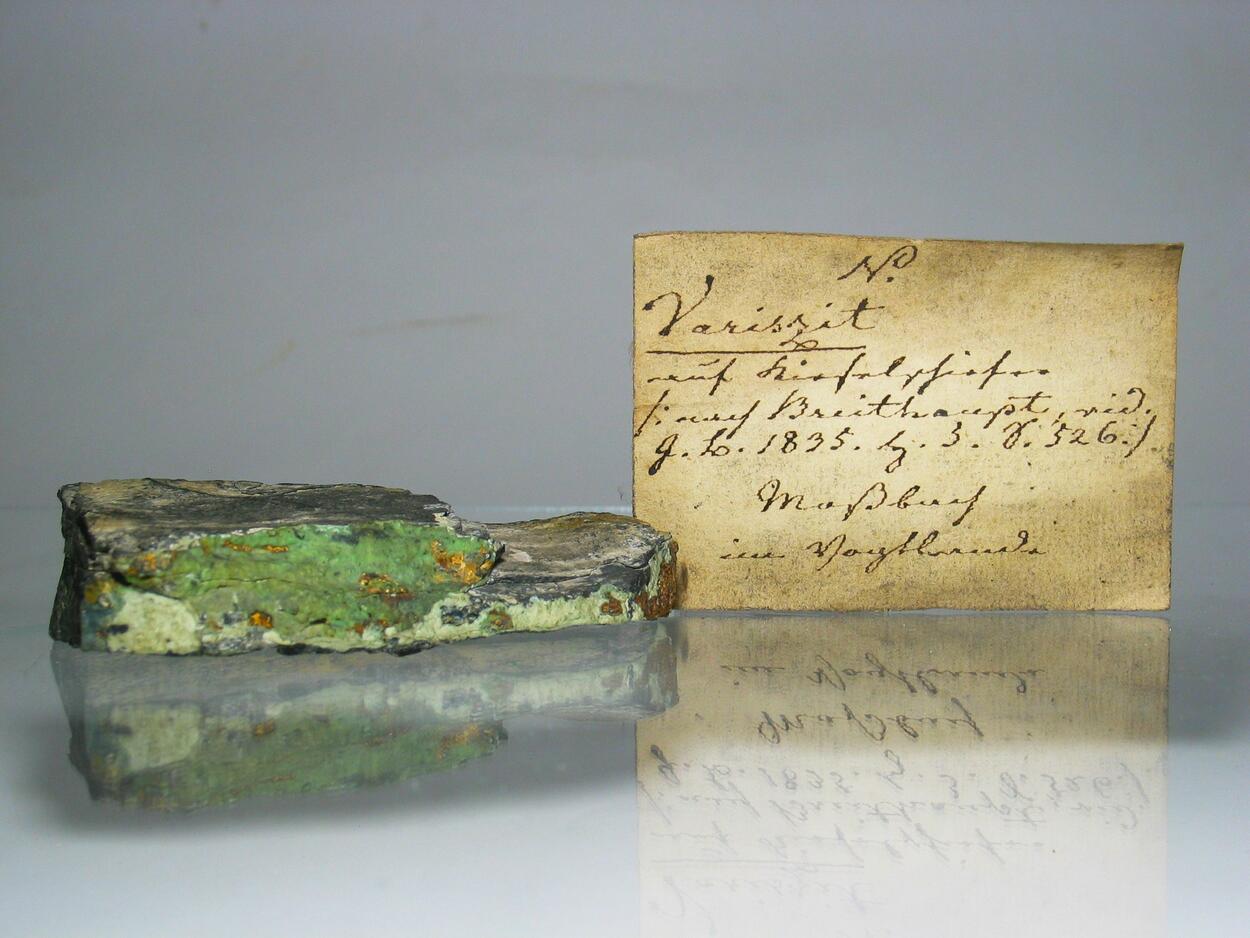 N.
Variszit
auf Kieselschiefer
/: nach Breithaupt, vid.
J. L. 1835. H. 3. S. 326:/
Moßbach
im Voigtlande